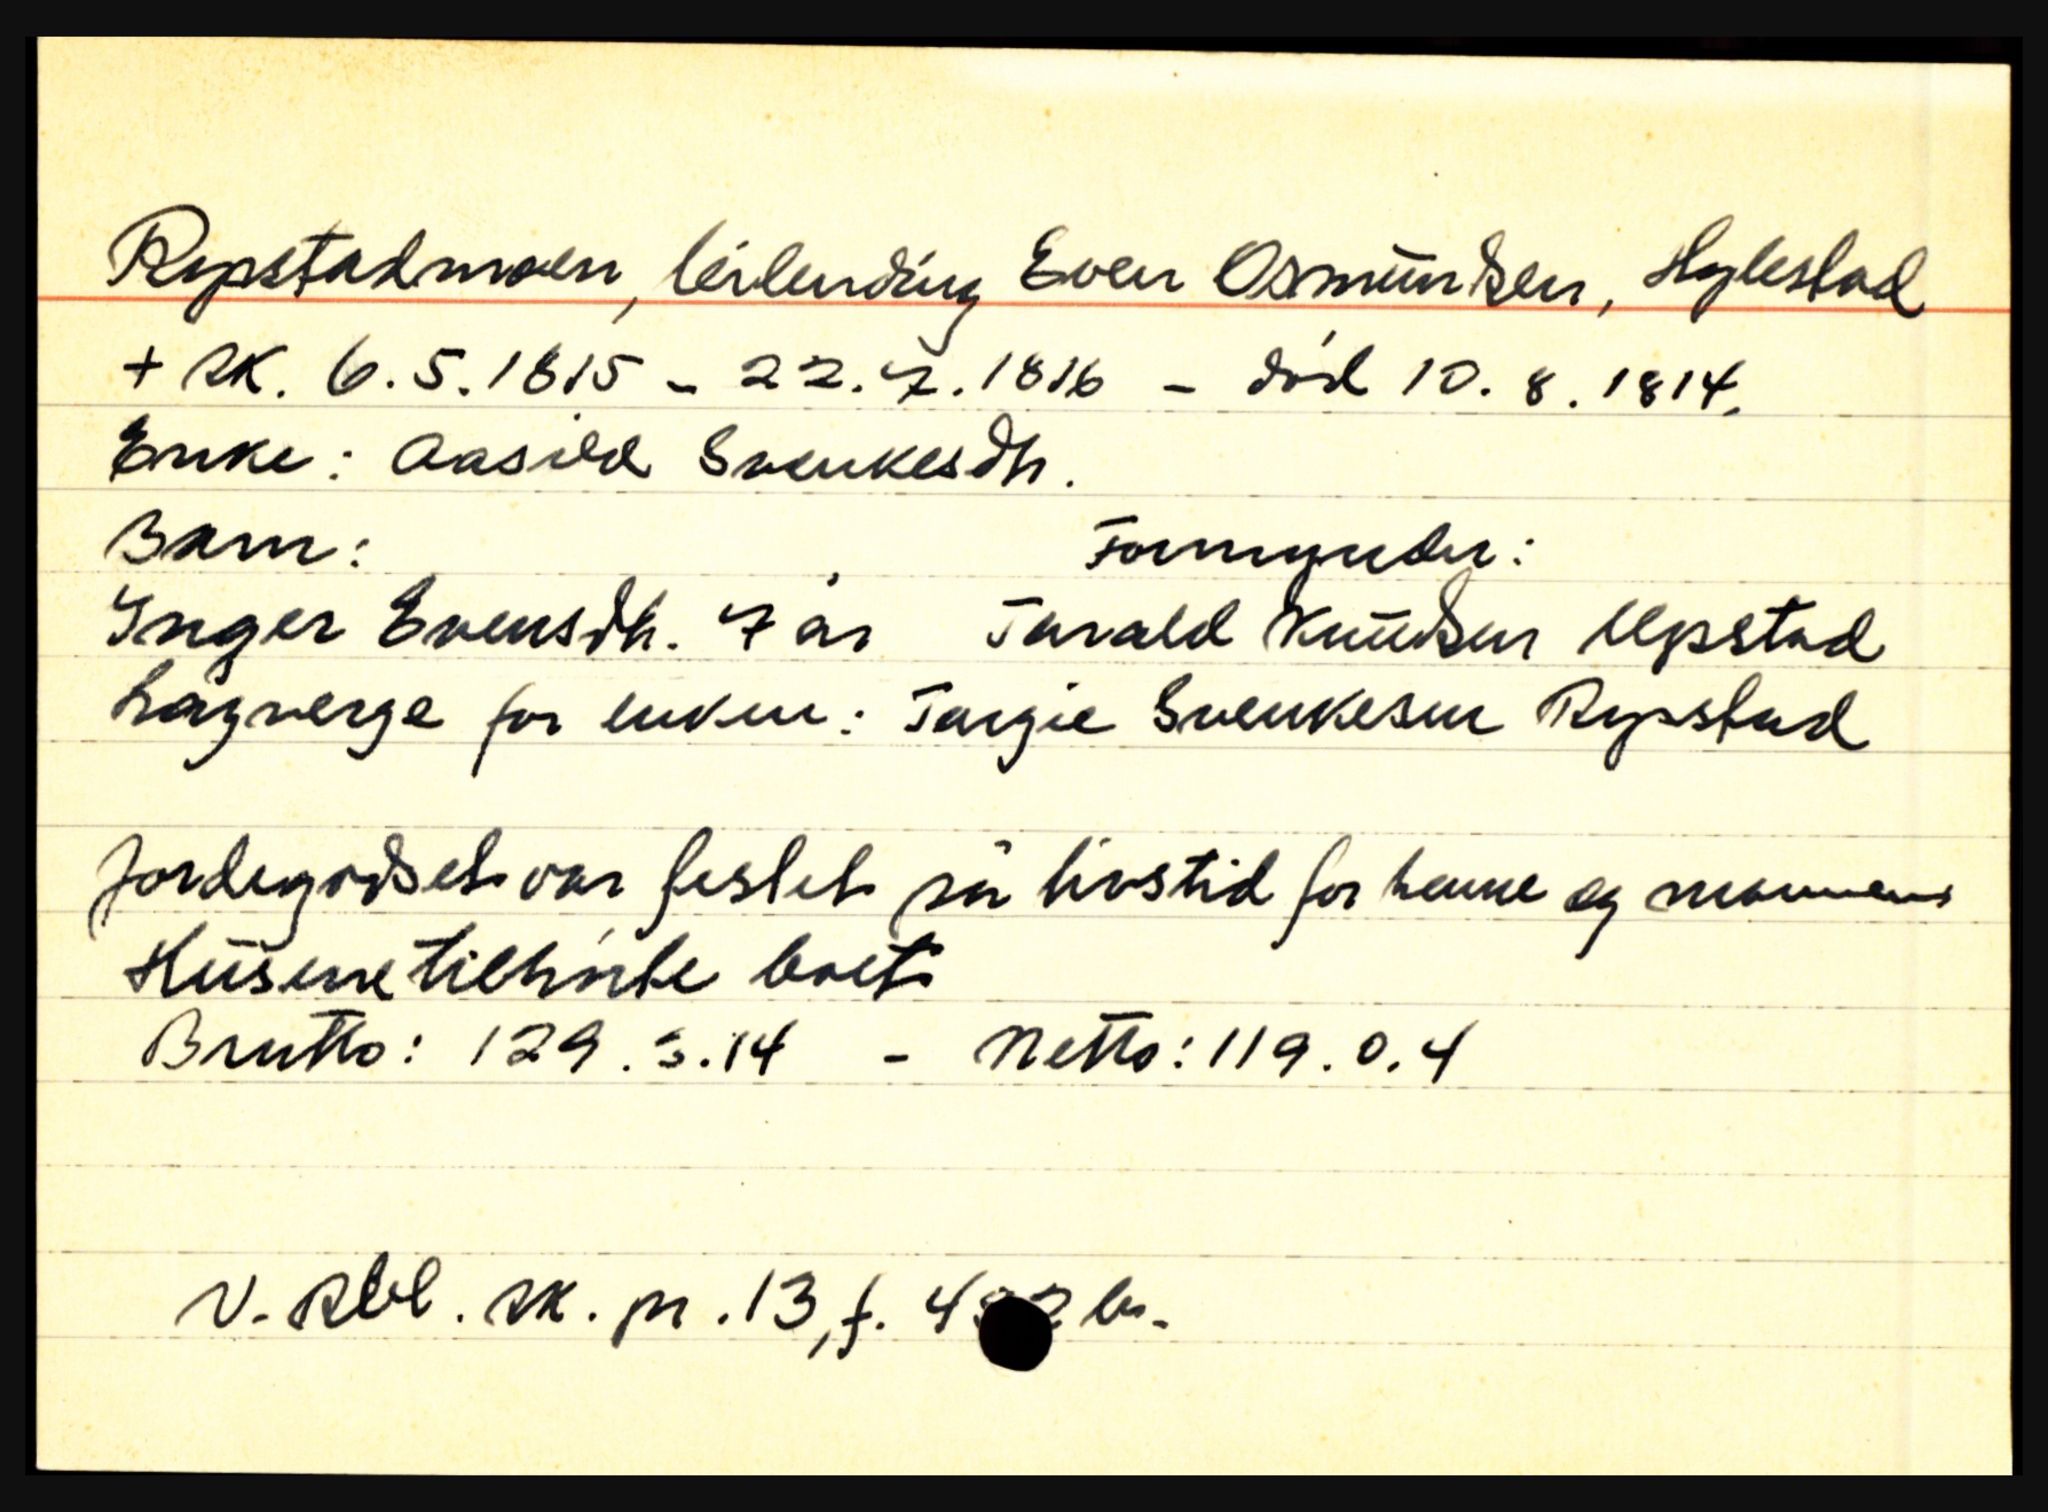 Rypstadmoen, leilending Even Osmundsen, Hylestad
+ RK. 6.5.1815 - 22.7.1816 - død 10.8.1814.
Enke: Aasild Svenkesdtr.
Barn: Formynder:
Inger Evensdtr. 7 år Tarald Knudsen Upstad
Lagverge for enken: Targie Svenkesen Rypstad
Jordegodset var festet på livstid for henne og mannen
Husene tilhørte boet
Brutto: 129.3.14 - Netto: 119.0.4
V. Rbl. RK. pr. 13, f. b.